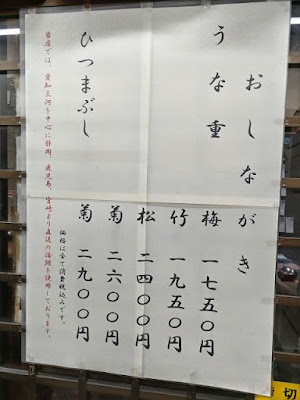 おしながき
うな重 梅 一七五〇円
竹 一九五〇円
松 二四〇〇円
菊 二六〇〇円
ひつまぶし 菊 二九〇〇円
価格は全て消費税込みです。
当店では、愛知三河を中心に静岡、鹿児島、宮崎より直送の活鰻を使用しております。
切